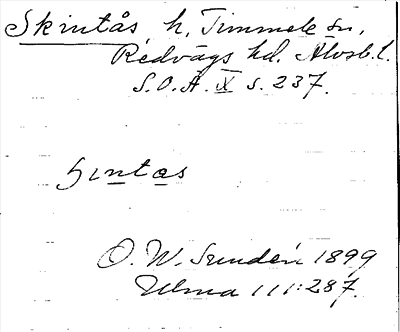 Skintås, h, Timmele sn,
Redvägs hd. Älvsb. l.
S.O.Ä. X s. 237.
O. W. Sundén 1899
Ulma 111:287.